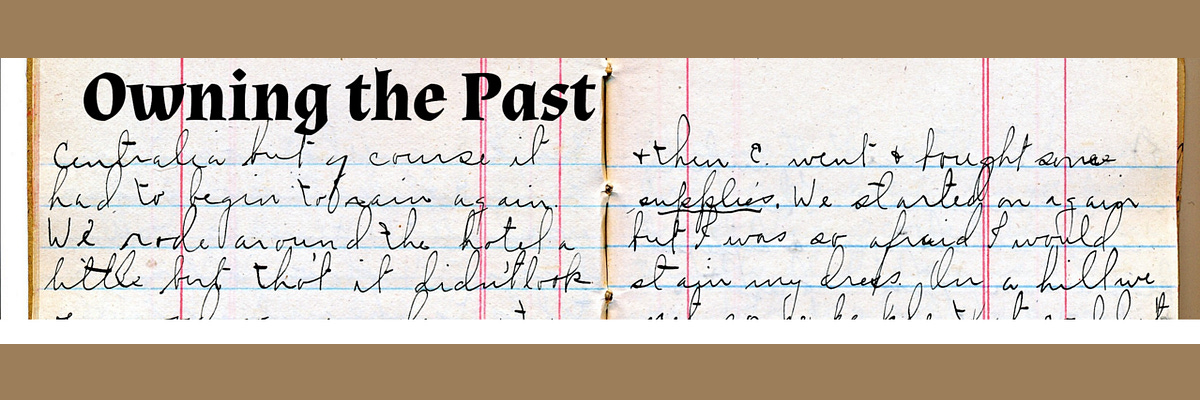 Owning the Past
Centralia but of course it
had to begin to rain again.
We rode around the hotel a
little but tho't it didn't look
+ then C. went + bought some
supplies. We started on again
but I was so afraid I would
stain my dress. On a hill we